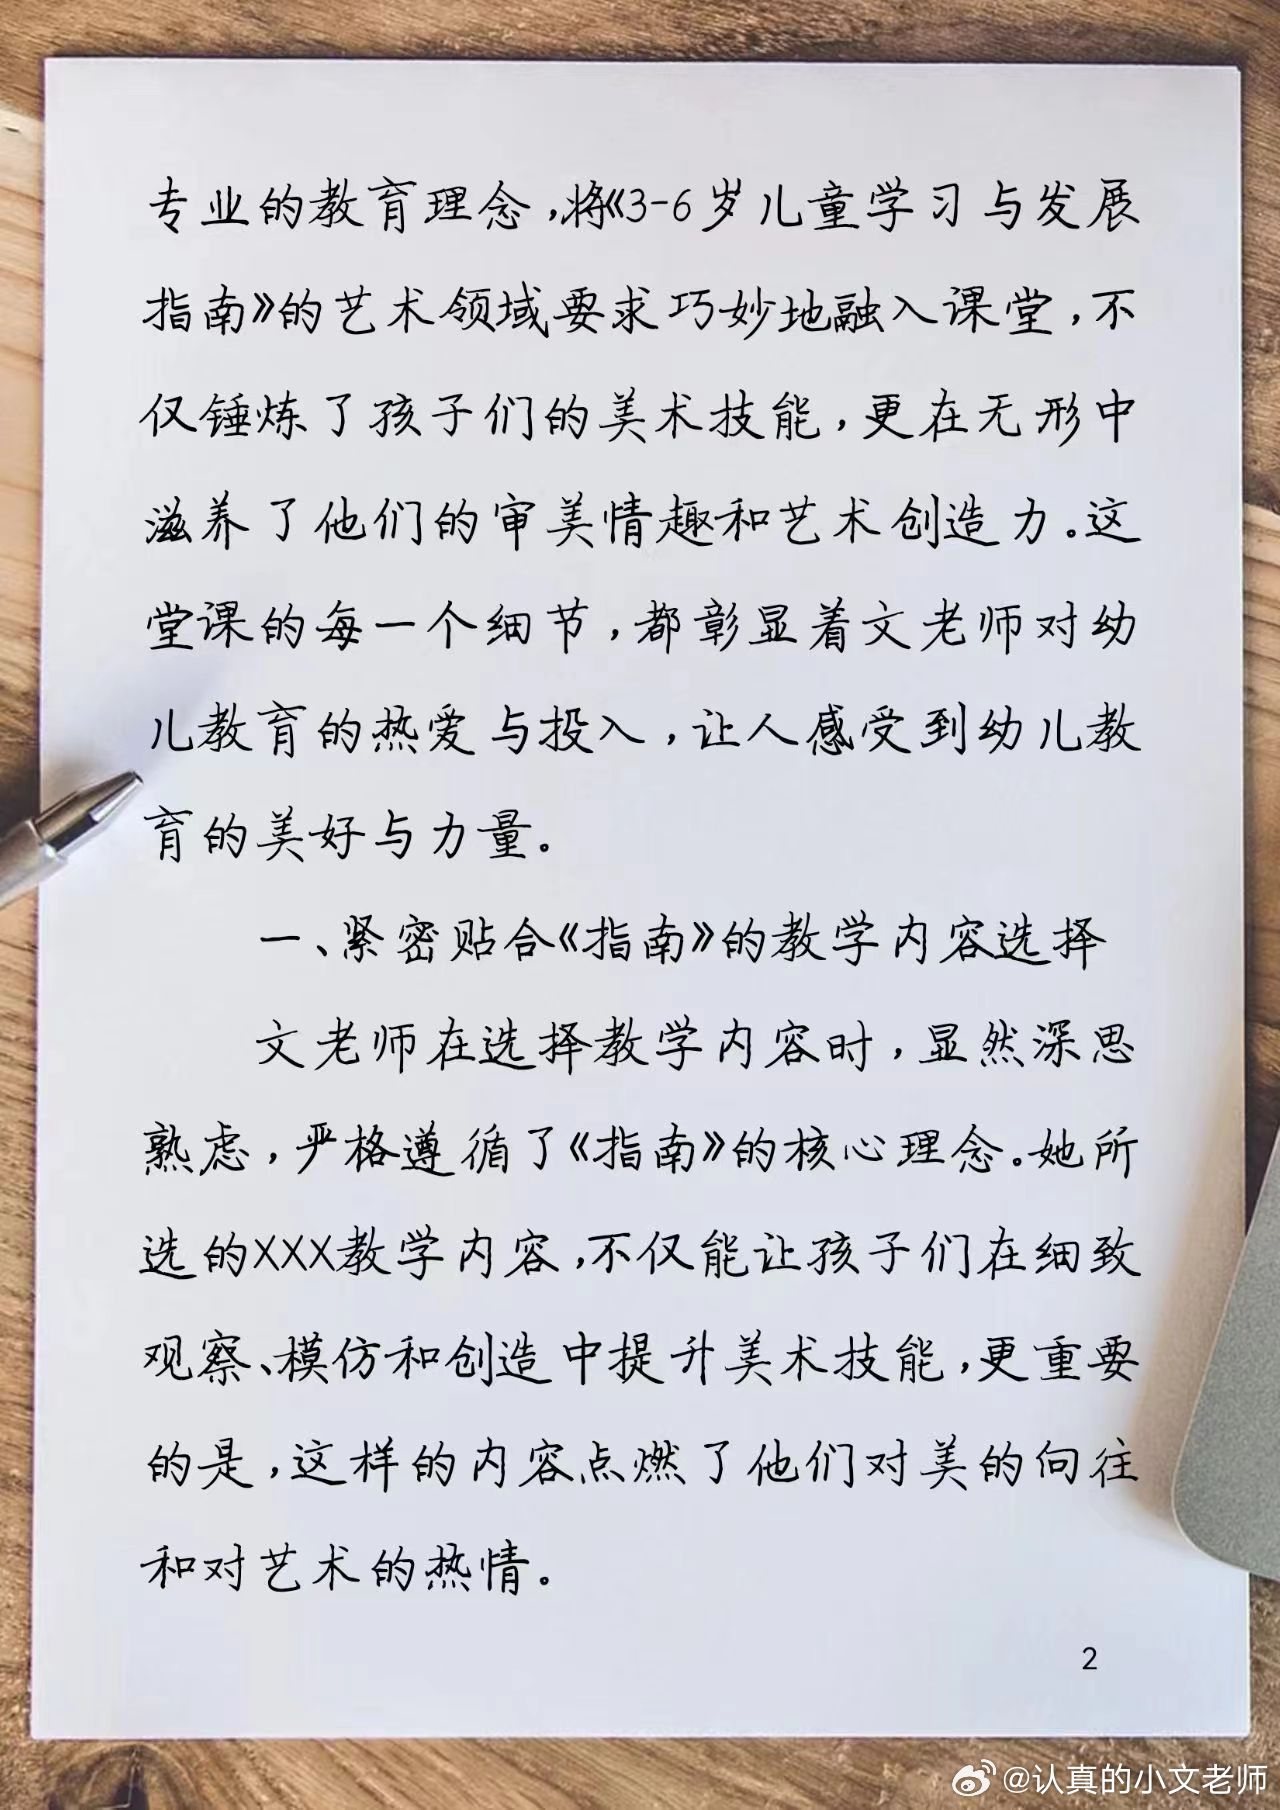 专业的教育理念,将《3-6岁儿童学习与发展
指南》的艺术领域要求巧妙地融入课堂,不
仅锤炼了孩子们的美术技能,更在无形中
滋养了他们的审美情趣和艺术创造力。这
堂课的每一个细节,都彰显着文老师对幼
儿教育的热爱与投入,让人感受到幼儿教
育的美好与力量。
一、紧密贴合《指南》的教学内容选择
文老师在选择教学内容时,显然深思
熟虑,严格遵循了《指南》的核心理念。她所
选的XXX教学内容,不仅能让孩子们在细致
观察、模仿和创造中提升美术技能,更重要
的是,这样的内容点燃了他们对美的向往
和对艺术的热情。
2
@认真的小文老师